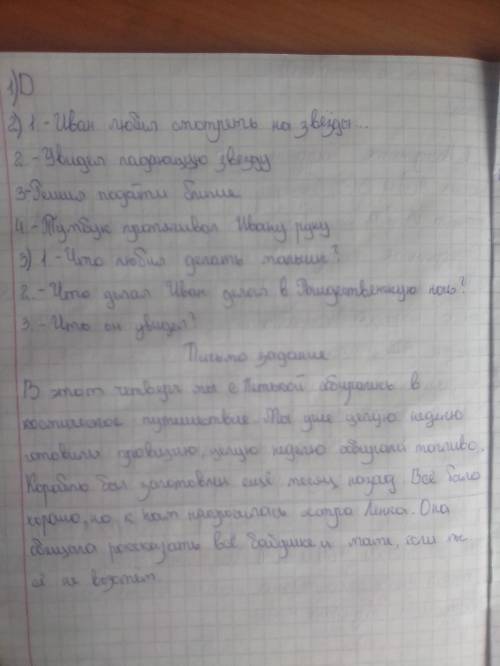 1) D
2) 1.-Иван любил смотреть на звёзды...
2.-Увидел падающую звезду
3-Решил подойти ближе
4.-Тумбук протягивал Ивану руку
3) 1.-Что любил делать мальчик?
2.-Что делал Иван делал в Рождественскую ночь?
3.-Что он увидел?
Письмо задание
В этот четверг мы с Петькой собирались в
космическое путешествие. Мы уже целую неделю
готовили провизию, целую неделю собирали топливо.
Корабль был заготовлен ещё месяц назад. Всё было
хорошо, но к нам сестра Ленка. Она
обещала рассказать всё бабушке и маме, если мы
её не возьмём.